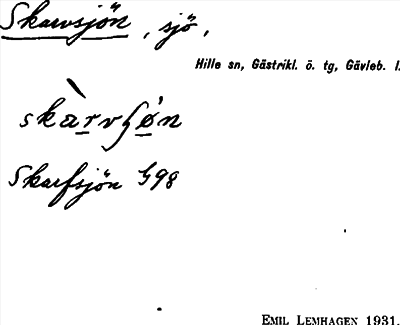 Skarvsjön, sjö,
Hille sn, Gästrikl. ö. tg, Gävleb. l.
skàrvʃø̀n
Skarfsjön G98
EMIL LEMHAGEN 1931.